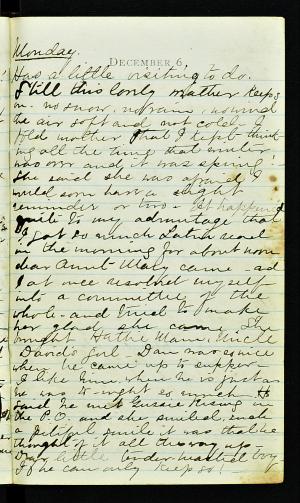 Monday.
DECEMBER 6.
Had a little visiting to do.
Still this lovely weather keeps
on - no snow, no rain, no wind
the air soft and not cold. I
told mother that I kept think-
ing all the time that winter
was over and it was spring!
She said she was afraid I
would soon have a slight
reminder or two - It happened
quite to my advantage that
I got so much Latin read
in the morning for about noon
dear Aunt Mary came - and
I at once resolved myself
into a committee of the
whole - and tried to make
her glad she came. She
brought Hattie Mann, Uncle
David's girl - Dan was so nice
when he came up to supper
I like him when he is just as
he was to-night so much. He
said he met Gussie in
the P.O. and she smiled such
a smile it was that he
thought of it all the way up -
Dear little tender hearted boy
If he can only keep so!